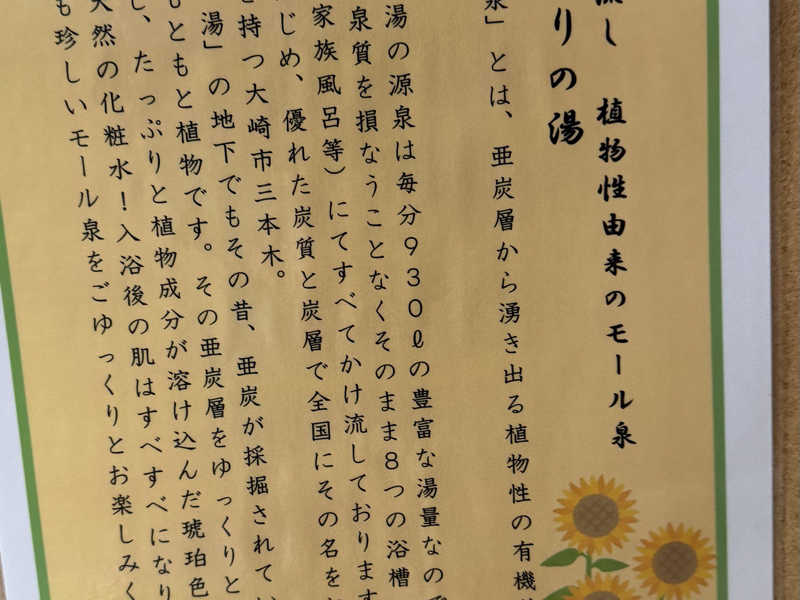 流し 植物性由来のモール泉
りの湯
泉」とは、亜炭層から湧き出る植物性の有機
湯の源泉は毎分930ℓの豊富な湯量なので
泉質を損なうことなくそのまま8つの浴槽
家族風呂等)にてすべてかけ流しております
じめ、優れた炭質と炭層で全国にその名を
持つ大崎市三本木。
湯」の地下でもその昔、亜炭が採掘されてい
もともと植物です。その亜炭層をゆっくりと
し、たっぷりと植物成分が溶け込んだ琥珀色
天然の化粧水!入浴後の肌はすべすべになり
も珍しいモール泉をごゆっくりとお楽しみく